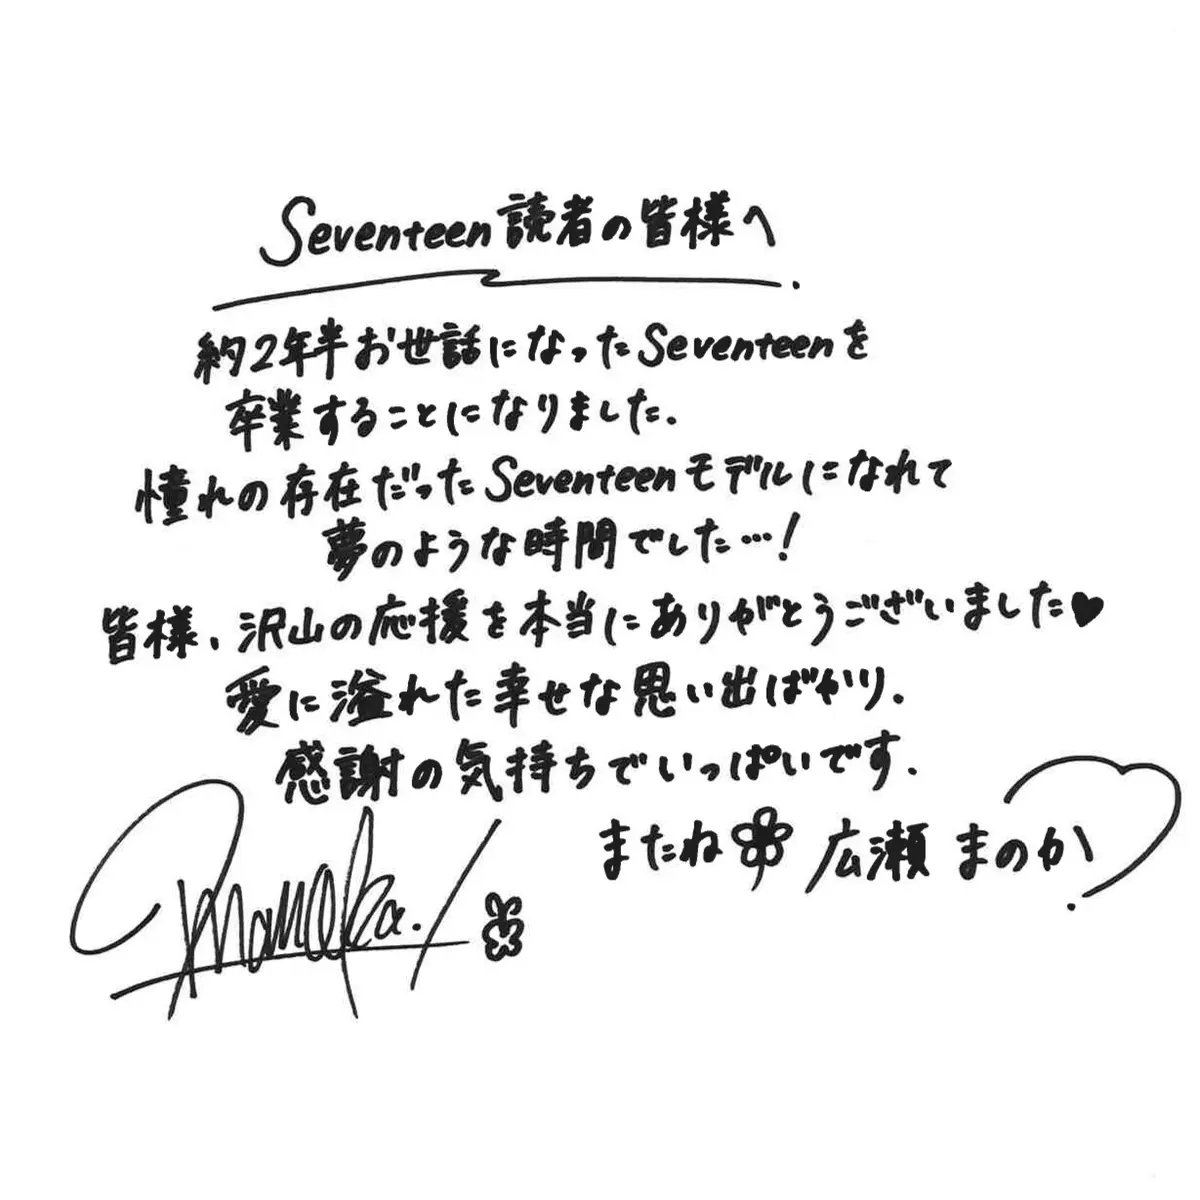 Seventeen読者の皆様へ
約2年半お世話になったSeventeenを
卒業することになりました.
憧れの存在だったSeventeenモデルになれて
夢のような時間でした…!
皆様、沢山の応援を本当にありがとうございました♥
愛に溢れた幸せな思い出ばかり.
感謝の気持ちでいっぱいです.
またね 広瀬まのか
Manoka.